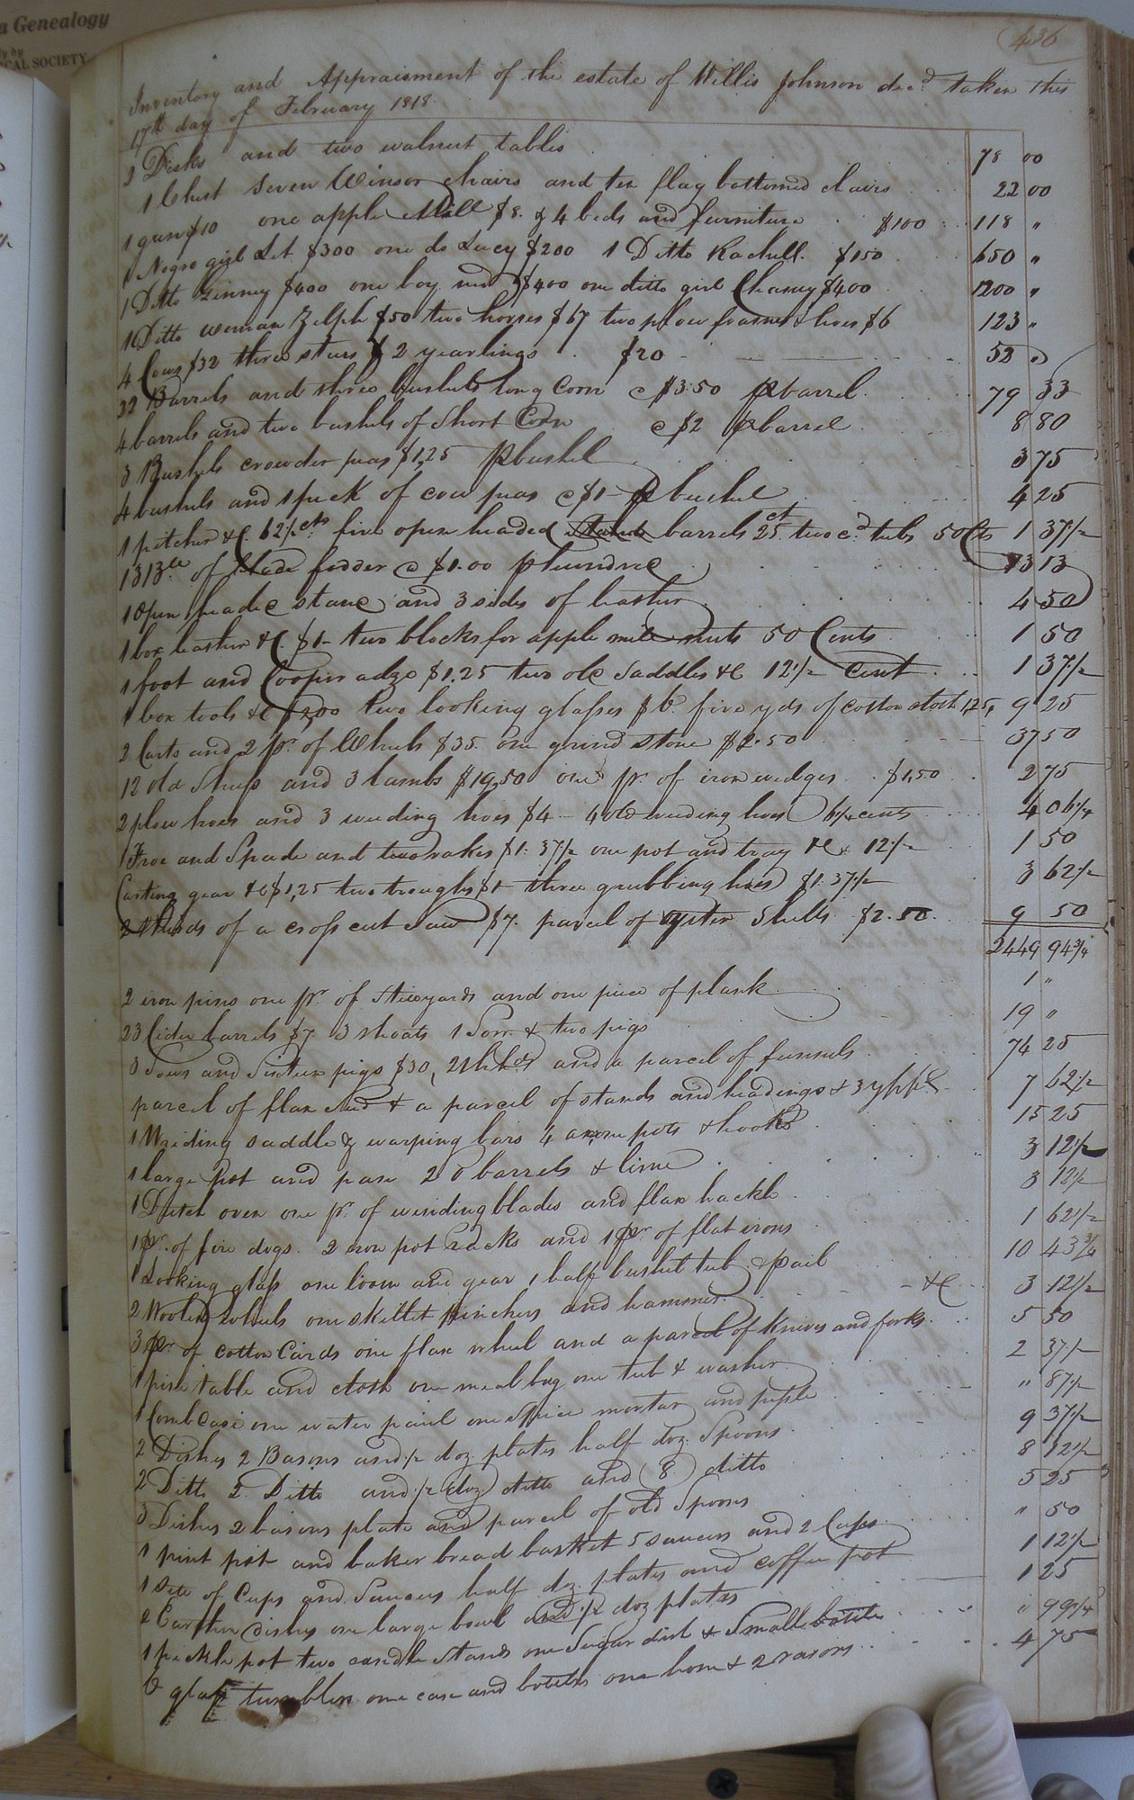 a Genealogy
CAL SOCIETY
436
Inventory and Appraisment of the estate of Willis Johnson decd taken this
17th day of February 1818.
2 Desks and two walnut tables 78 00
1 Chest Seven Winsor Chairs and ten flag bottomed chairs 22 00
1 gun $10 one apple Mill $8. & 4 beds and furniture $100 118 "
1 Negro girl Let $300 one do Lucy $200 1 Ditto Rachell. $150 650 "
1 Ditto Jinney $400 one boy $400 one ditto girl Chaney $400 1200 "
1 Ditto woman Zilph $50 two horses $67 two plow & hoes $6 123 "
4 Cows $32 three stears & 2 yearlings $20 52 "
22 Barrels and three bushels long Corn @ $3.50 p barrel 79 33
4 barrels and two bushels of Short Corn @ $2 p barrel 8 80
3 Bushels crowder peas $1,25 p bushel 3 75
4 bushels and 1 peck of cow peas @ $1 p bushel 4 25
1 pitcher &C. 62½ cts five open headed barrels 25 ct two od tubs 50 Cts 1 37½
1313 lb of blade fodder @ $1.00 p hundred 13 13
1 Open headed stand and 3 sides of leather 4 50
1 box leather &C. $1 two blocks for apple mill nuts 50 Cents 1 50
1 foot and Coopers adze $1.25 two old Saddles &C 12½ Cent 1 37½
1 box tools &C $2,00 two looking glasses $6. five yds of cotton cloth 1,25 9 25
2 Carts and 2 pr. of Wheels $35. one grind stone $2.50 37 50
12 old Sheep and 3 lambs $19,50 one pr. of iron wedges $1,50 2 75
2 plow hoes and 3 weeding hoes $4 4 old weeding hoes 6¼ cents 4 06¼
1 Froe and Spade and two rakes $1.37½ one pot and tray &C 12½ 1 50
Carting gear &C $1,25 two troughs $1 three grubbing hoes $1.37½ 3 62½
2 thirds of a cross cut saw $7. parcel of oyster Shells $2.50. 9 50
2449 94¾
2 iron pins one pr. of Steeyards and one piece of plank 1 "
23 Cider barrels $7 3 shoats 1 Sow & two pigs 19 "
3 Sows and Sixteen pigs $30, 21 hhds and a parcel of funnels 74 25
parcel of flax Seed & a parcel of stands and headings & 3 7 62½
1 Wriding saddle & warping bars 4 pots & hooks 15 25
1 large pot and pan 20 barrels & lime 3 12½
1 Dutch oven one pr. of winding blades and flax hackle 3 12½
1 pr. of fire dogs. 2 iron pot racks and 1 pr. of flat irons 1 62½
1 Looking glass one loom and gear 1 half bushel tub & pail 10 43¾
2 Woolen wheels one skillet pinchers and hammer &C 3 12½
3 pr. of cotton Cards one flax wheel and a parcel of Knives and forks 5 50
1 pine table and cloth one meal bag one tub & washer 2 37½
1 Comb Case one water pail one Spice mortar and pestle " 87½
2 Dishes 2 Basons and ½ doz plates half doz. Spoons 9 37½
2 Ditto 2 Ditto and ½ doz ditto and 8 ditto 8 12½
3 Dishes 2 basons plate and parcel of old Spoons 5 25
1 pint pot and baker bread basket 5 saucers and 2 Cups " 50
1 Sett of Cups and Saucers half doz. plates and coffee pot 1 12½
2 Earthen dishes one large bowl and ½ doz plates 1 25
1 pickle pot two candle Stands one Sugar dish & Small bottle " 99¼
6 glass tumblers one case and bottles one hone & 2 rasors 4 75